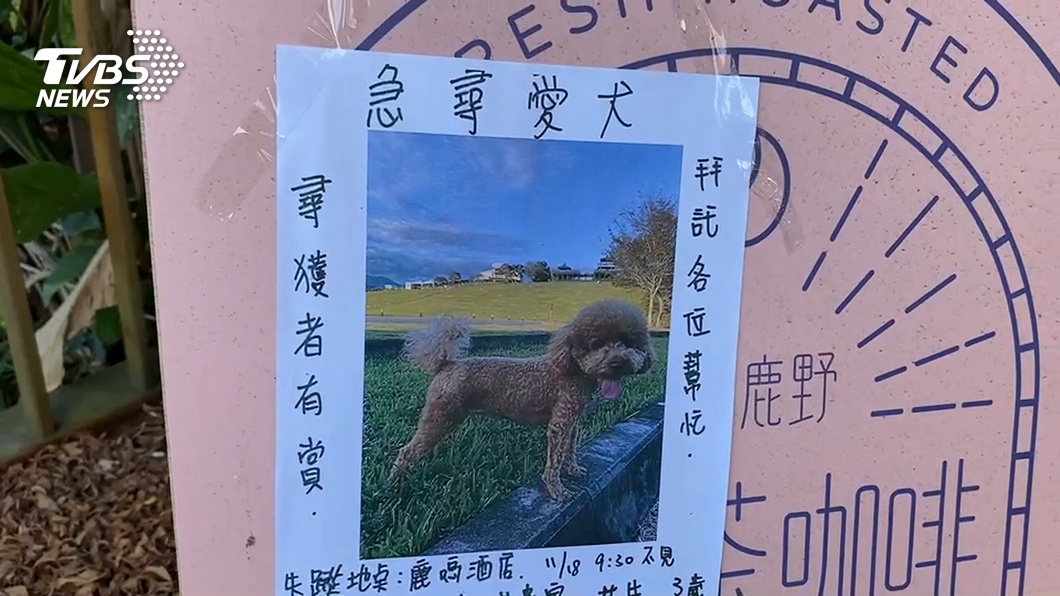 TVBS
NEWS
急尋愛犬
拜託各位幫忙.
尋獲者有賞.
失蹤地點:鹿鳴酒店. 11/18 9:30不見
3歲
ROASTED
鹿野
咖啡